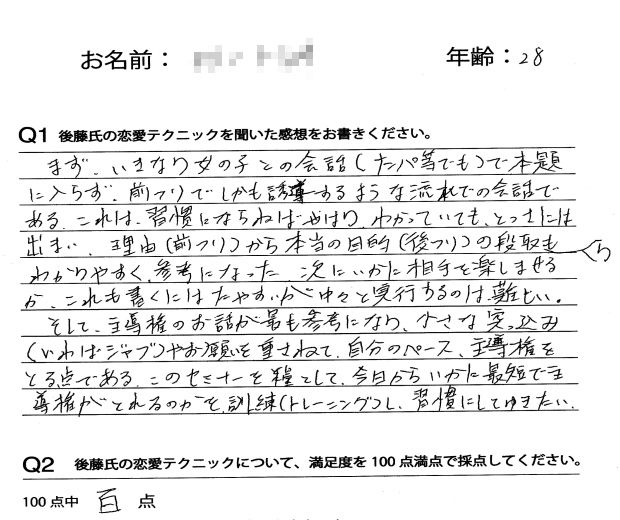 お名前：
年齢：28
Q1 後藤氏の恋愛テクニックを聞いた感想をお書きください。
まず、いきなり女の子との会話(ナンパ等でも)で本題
に入らず、前フリでしかも誘導するような流れでの会話で
ある。これは、習慣にならねばやはり、わかっていても、とっさには
出まい。理由(前フリ)から本当の目的(後フリ)の段取も
わかりやすく、参考になった。次にいかに相手を楽しませる
か、これも書くにはたやすいが中々と実行するのは、難しい。
そして、主導権のお話が最も参考になり、小さな突っ込み
(いわばジャブ)やお願いを重ねて、自分のペース、主導権を
とる点である。このセミナーを糧として、今日からいかに最短で主
導権がとれるのかを、訓練(トレーニング)し、習慣にしてゆきたい。
Q2 後藤氏の恋愛テクニックについて、満足度を100点満点で採点してください。
100点中 百 点